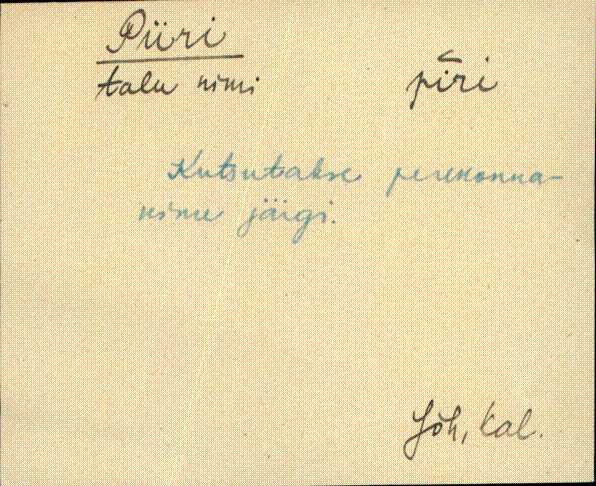 Piiri
talu nimi pīri
Kutsutakse perekonna-
nime järgi.
Jõh, Kal.